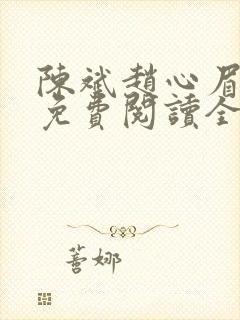 陳斌趙心眉
免費閱讀全
蔷娜